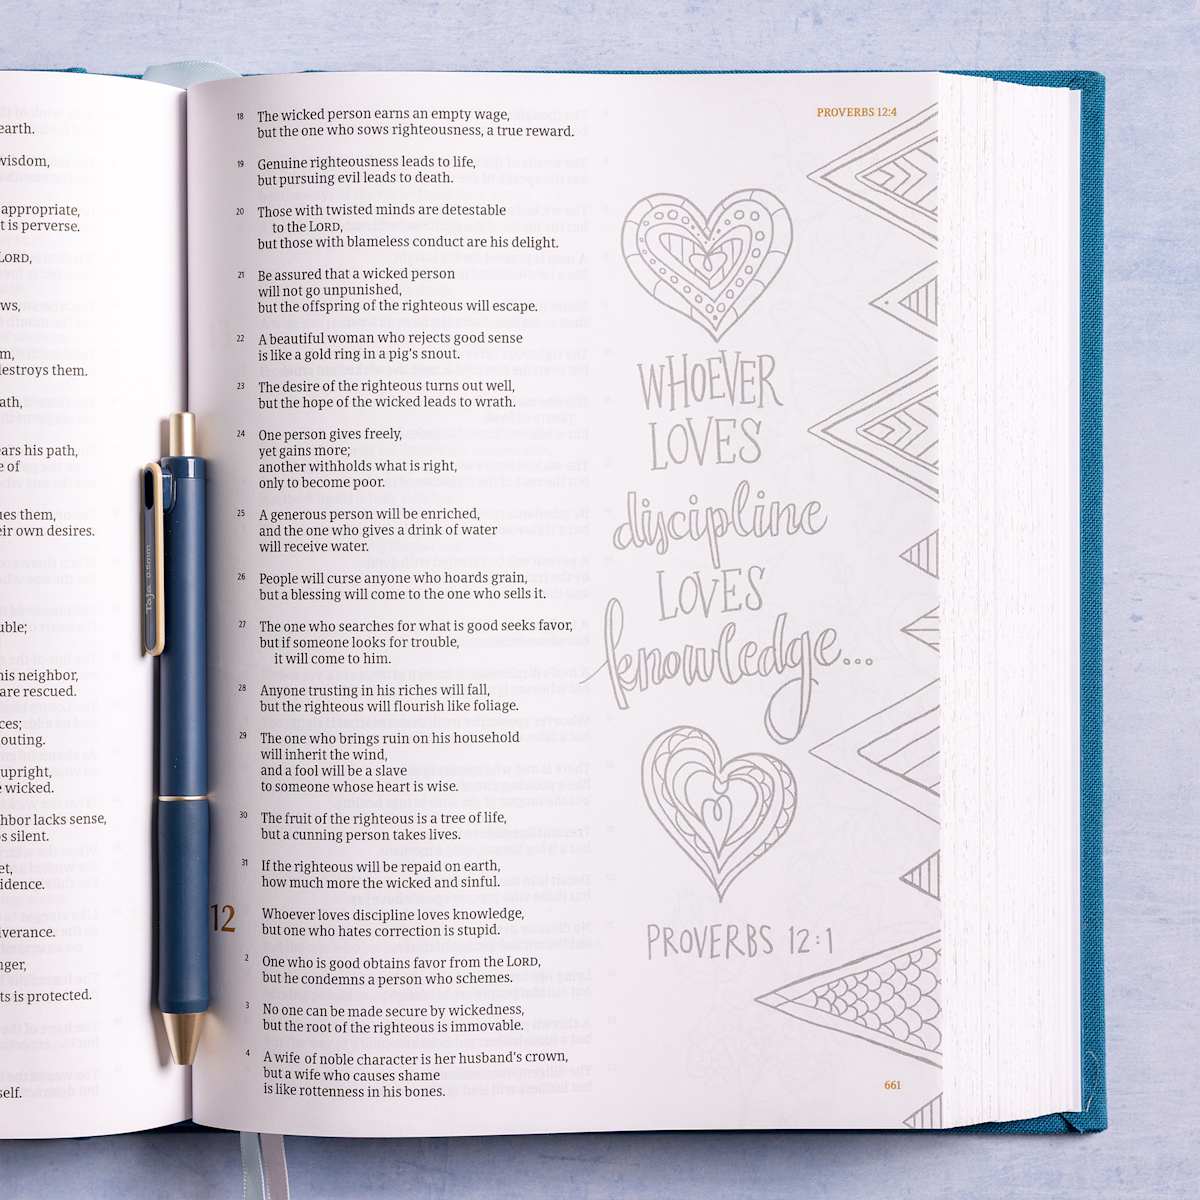 earth.
wisdom,
appropriate,
t is perverse.
LORD,
ws,
m,
destroys them.
ath,
ears his path,
e of
ues them,
eir own desires.
uble;
his neighbor,
are rescued.
ces;
outing.
upright,
e wicked.
hbor lacks sense,
ps silent.
et,
idence.
iverance.
nger,
ts is protected.
self.
Taja 0.5mm
18 The wicked person earns an empty wage,
but the one who sows righteousness, a true reward.
19 Genuine righteousness leads to life,
but pursuing evil leads to death.
20 Those with twisted minds are detestable
to the LORD,
but those with blameless conduct are his delight.
21 Be assured that a wicked person
will not go unpunished,
but the offspring of the righteous will escape.
22 A beautiful woman who rejects good sense
is like a gold ring in a pig's snout.
23 The desire of the righteous turns out well,
but the hope of the wicked leads to wrath.
24 One person gives freely,
yet gains more;
another withholds what is right,
only to become poor.
25 A generous person will be enriched,
and the one who gives a drink of water
will receive water.
26 People will curse anyone who hoards grain,
but a blessing will come to the one who sells it.
27 The one who searches for what is good seeks favor,
but if someone looks for trouble,
it will come to him.
28 Anyone trusting in his riches will fall,
but the righteous will flourish like foliage.
29 The one who brings ruin on his household
will inherit the wind,
and a fool will be a slave
to someone whose heart is wise.
30 The fruit of the righteous is a tree of life,
but a cunning person takes lives.
31 If the righteous will be repaid on earth,
how much more the wicked and sinful.
12 Whoever loves discipline loves knowledge,
but one who hates correction is stupid.
2 One who is good obtains favor from the LORD,
but he condemns a person who schemes.
3 No one can be made secure by wickedness,
but the root of the righteous is immovable.
4 A wife of noble character is her husband's crown,
but a wife who causes shame
is like rottenness in his bones.
PROVERBS 12:4
WHOEVER
LOVES
discipline
LOVES
knowledge...
PROVERBS 12:1
661